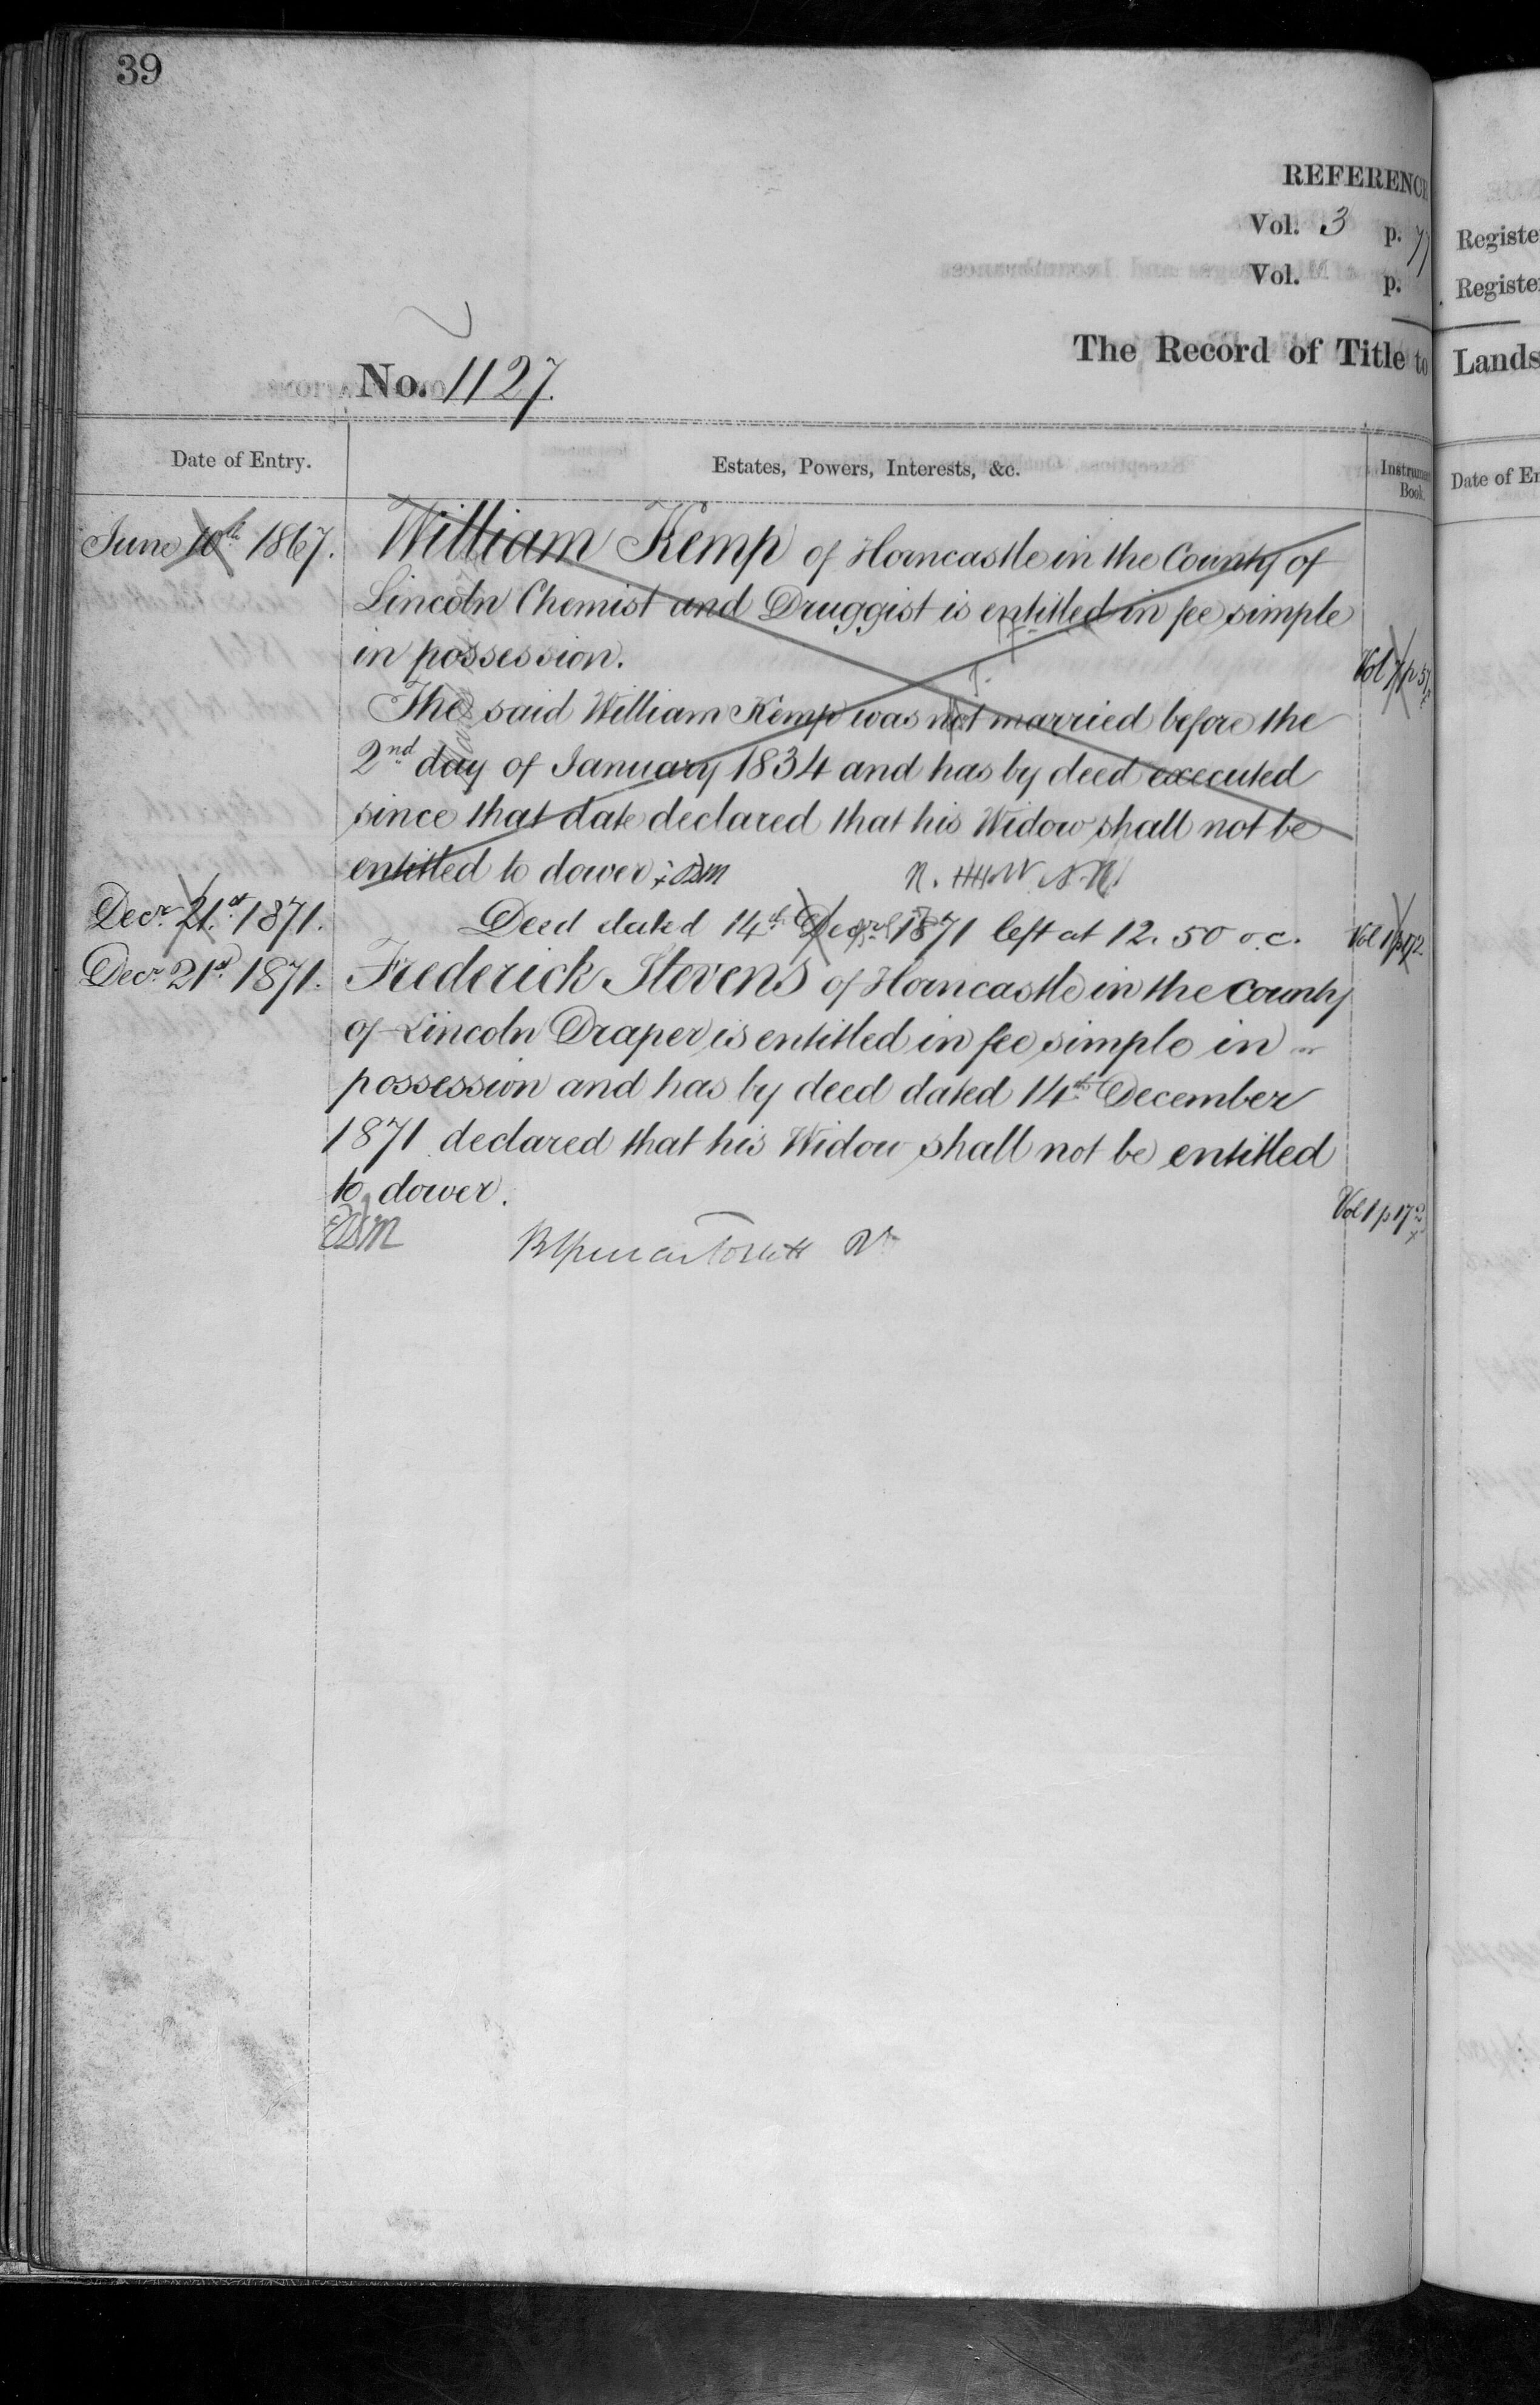 39
REFERENC
Vol. 3 p. 77
Vol. p.
Registe
Register
The Record of Title to Lands
No. 1127.
Date of Entry.
Estates, Powers, Interests, &c.
Instrument Book.
Date of En
June 10th 1867.
William Kemp of Horncastle in the County of
Lincoln Chemist and Druggist is entitled in fee simple
in possession.
Vol 1 p 51
The said William Kemp was not married before the
2nd day of January 1834 and has by deed executed
since that date declared that his Widow shall not be
entitled to dower.
Decr. 21st 1871.
Deed dated 14th Decr. 1871 left at 12. 50 o.c.
Vol 1 p 172
Decr. 21st 1871.
Frederick Stevens of Horncastle in the County
of Lincoln Draper is entitled in fee simple in
possession and has by deed dated 14th December
1871 declared that his Widow shall not be entitled
to dower.
Vol 1 p 172